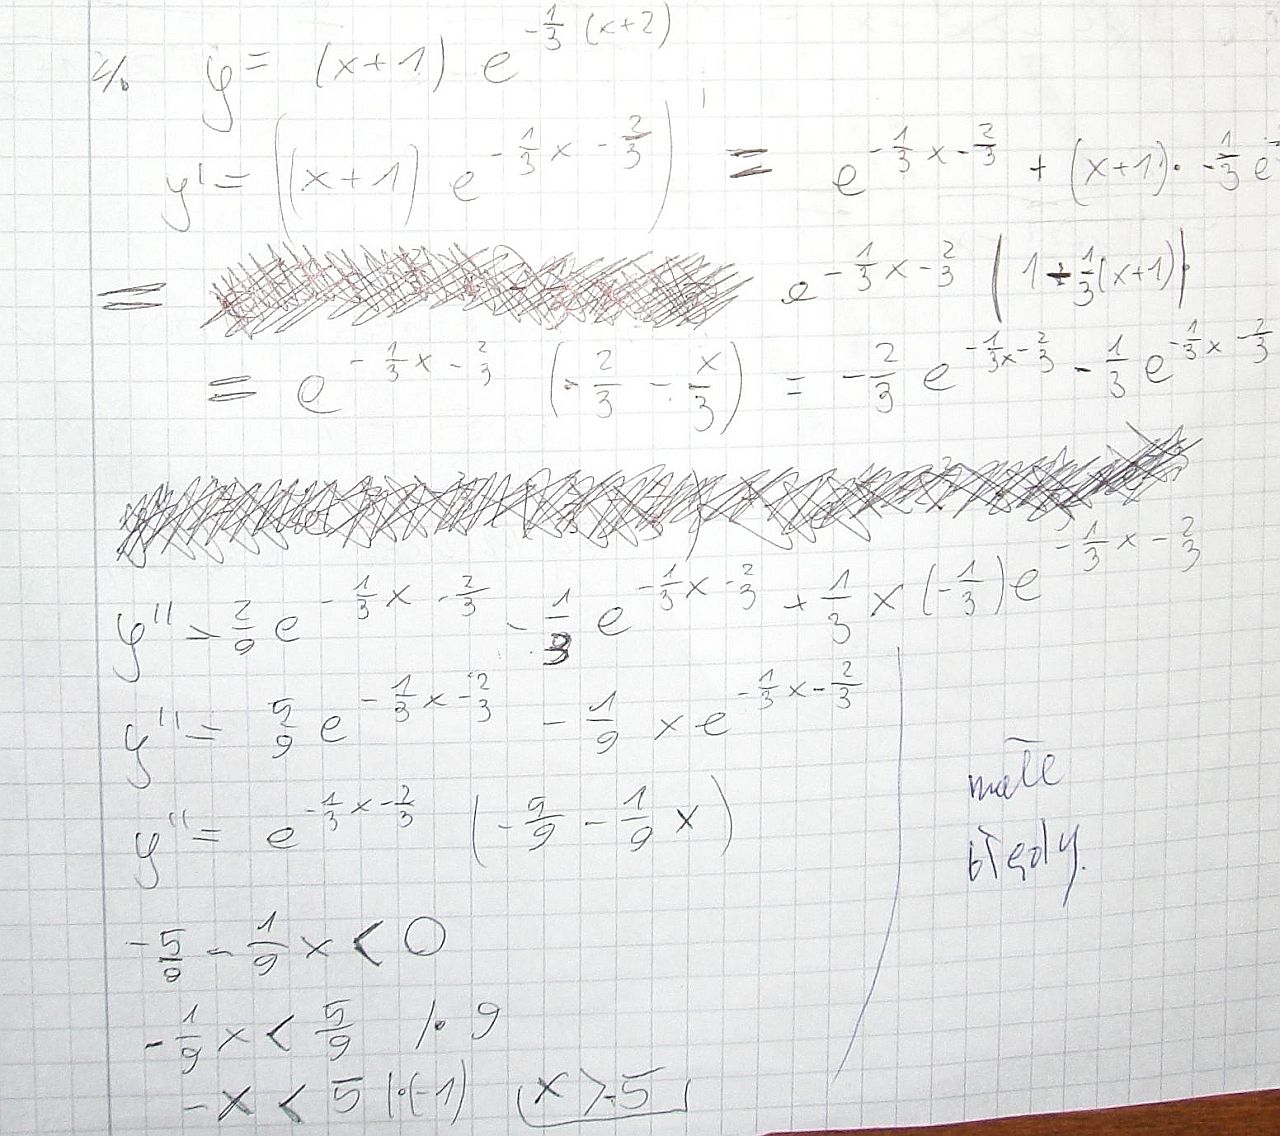 4. y = (x+1) e^{-\frac{1}{3}(x+2)}
y' = ((x+1) e^{-\frac{1}{3}x - \frac{2}{3}})' = e^{-\frac{1}{3}x - \frac{2}{3}} + (x+1) · -\frac{1}{3} e^{-
= e^{-\frac{1}{3}x - \frac{2}{3}} (1 - \frac{1}{3}(x+1))
= e^{-\frac{1}{3}x - \frac{2}{3}} (-\frac{2}{3} - \frac{x}{3}) = -\frac{2}{3} e^{-\frac{1}{3}x - \frac{2}{3}} - \frac{1}{3} e^{-\frac{1}{3}x - \frac{2}{3}}
y'' = \frac{2}{9} e^{-\frac{1}{3}x - \frac{2}{3}} - \frac{1}{3} e^{-\frac{1}{3}x - \frac{2}{3}} + \frac{1}{3} x (-\frac{1}{3}) e^{-\frac{1}{3}x - \frac{2}{3}}
y'' = \frac{5}{9} e^{-\frac{1}{3}x - \frac{2}{3}} - \frac{1}{9} x e^{-\frac{1}{3}x - \frac{2}{3}}
y'' = e^{-\frac{1}{3}x - \frac{2}{3}} (-\frac{5}{9} - \frac{1}{9} x)
małe
błędy.
-\frac{5}{9} - \frac{1}{9} x < 0
-\frac{1}{9} x < \frac{5}{9} /· 9
-x < 5 |·(-1) x > -5